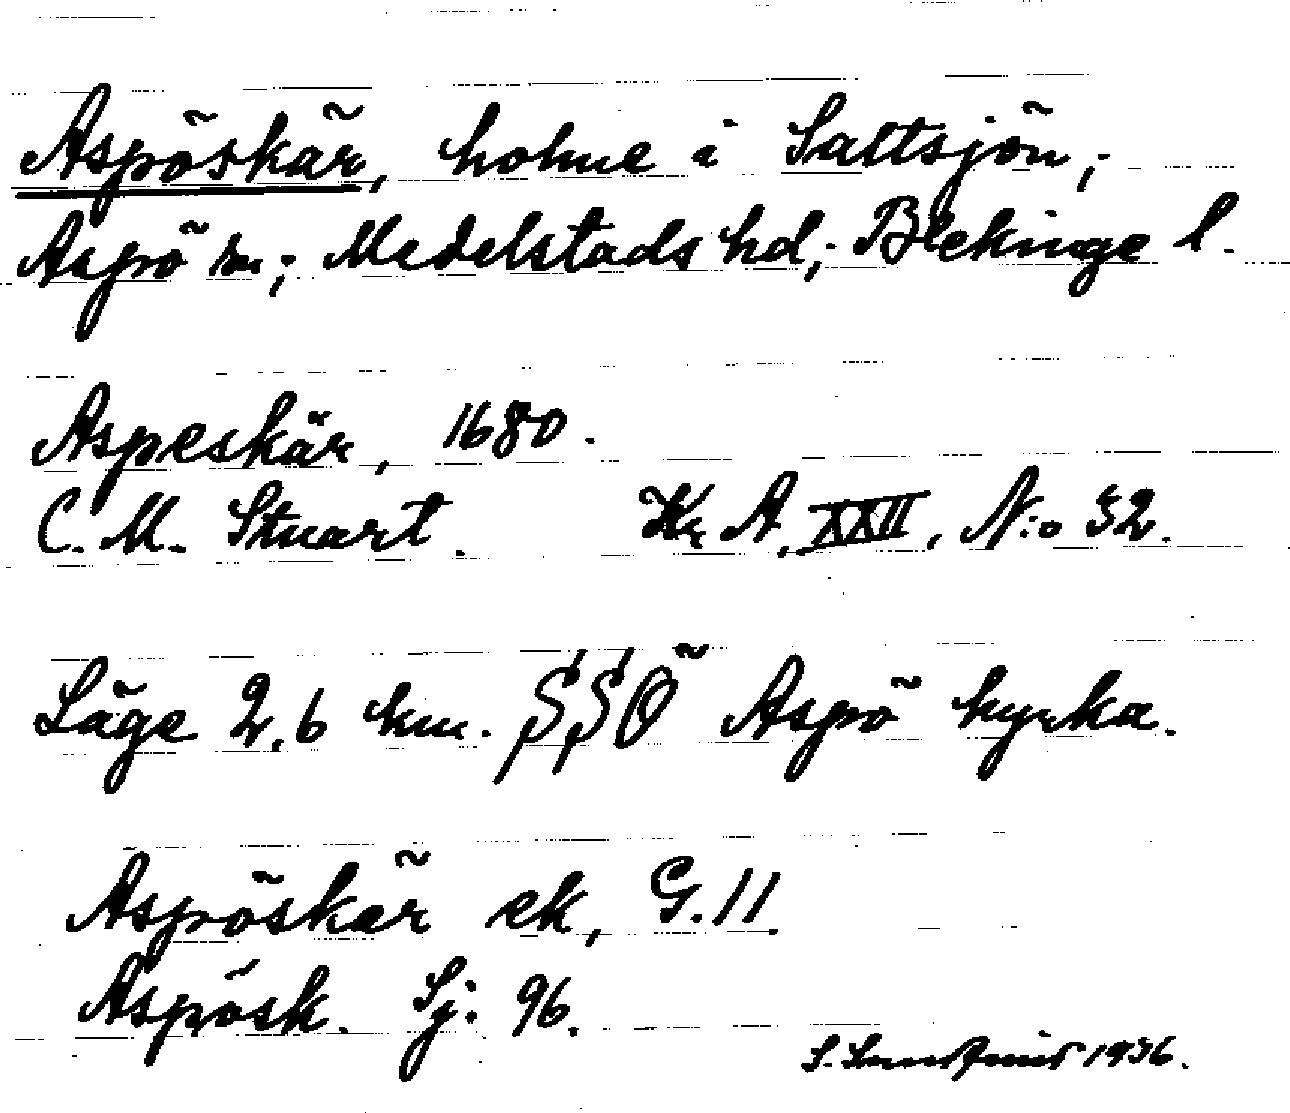 Aspöskär, holme i Saltsjön,;
Aspö sn; Medelstads hd; Blekinge l.
Aspeskär, 1680.
C. M. Stuart. Kr. A. XXII, N:o 32.
Läge 2,6 km. SSÖ Aspö kyrka.
Aspöskär ek, G. 11.
Aspösk. Sj: 96.
S. 1936.